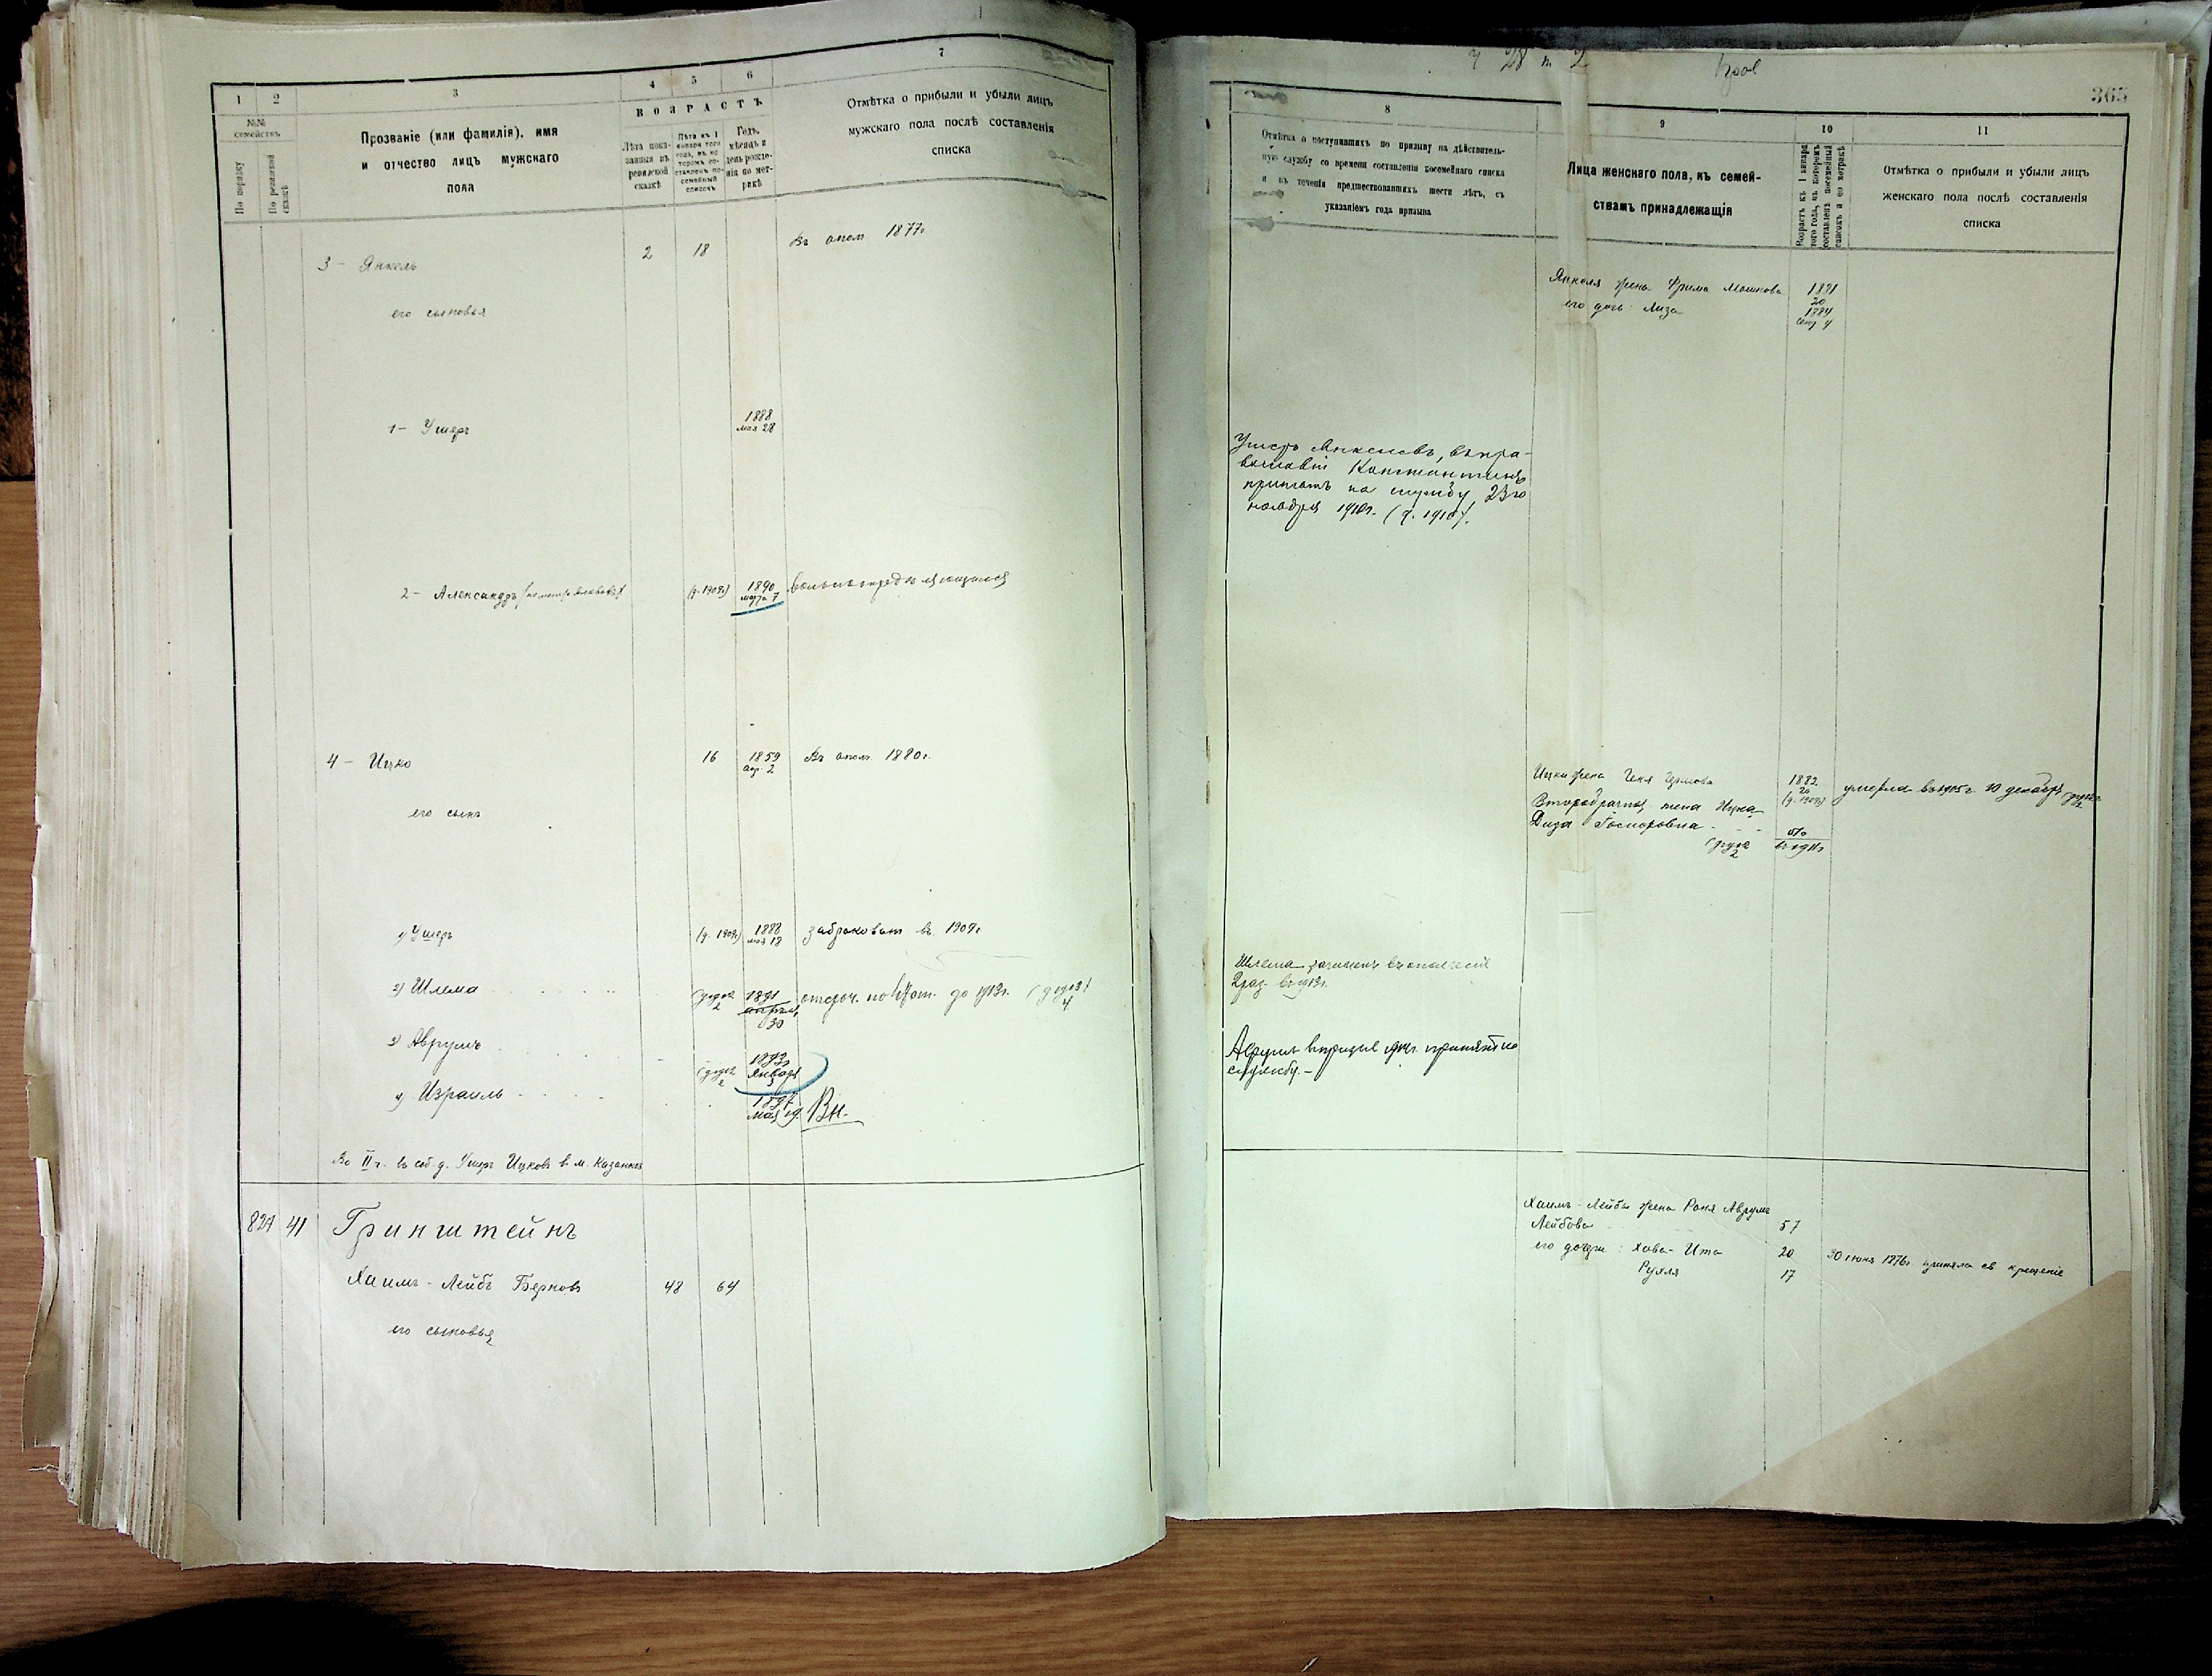 1
2
3
4
5
6
7
№№ семействъ
По порядку
По ревизской сказкѣ
Прозваніе (или фамилія), имя
и отчество лицъ мужскаго
пола
ВОЗРАСТЪ
Лѣта пока-
занныя въ
ревизской
сказкѣ
Лѣта къ 1
января того
года, въ ко-
торомъ со-
ставленъ по-
семейный
списокъ
Годъ,
мѣсяцъ и
день рожде-
нія по мет-
рикѣ
Отмѣтка о прибыли и убыли лицъ
мужскаго пола послѣ составленія
списка
3 - Янкель 2 18 Въ опол 1877г
его сыновья
1 - Ушеръ 1888
мая 28
2 - Александръ (г. 1909г) 1890
марта 7
4 - Ицко 16 1859 Въ опол. 1880г.
апр. 2
его сынъ
1) Ушеръ 1888 забракован въ 1909г
мая 18
2) Шлема 1891 отсроч. до 1913г.
30
3) Аврумъ 1893
Января
4) Израиль Вн.
мая
Во II ч. въ соб. д. Ушеръ Ицковъ в м. Казанкѣ
827 41 Гринштейнъ
Хаимъ-Лейбъ Берковъ 48 64
его сыновья
365
8
9
10
11
Отмѣтка о поступившихъ по призыву на дѣйствитель-
ную службу со времени составленія посемейнаго списка
и въ теченіи предшествовавшихъ шести лѣтъ, съ
указаніемъ года призыва
Лица женскаго пола, къ семей-
ствамъ принадлежащія
Возрастъ къ 1 января
того года, въ которомъ
составленъ посемейный
списокъ и по метрикѣ
Отмѣтка о прибыли и убыли лицъ
женскаго пола послѣ составленія
списка
Янкеля жена Фрима Мошкова 1881
20
его дочь: Лиза 1884
сент 4
Ушеръ Янкелевъ, въ пра-
вославіи Константинъ
принятъ на службу 23го
ноября 1910г. (д. 1910).
Ицки жена 1882
20
умерла въ 1915г. 10 декабр
Второбрачная жена Ицка
Диза
Шлема зачисленъ въ ополченіе
2 раз. въ 1913г.
Аврумъ въ призывѣ 1914г. принятъ на
службу. -
Хаимъ-Лейба жена Раня Аврумъ
Лейбова 57
его дочери: Хова-Ита 20 30 іюня 1876г. приняла св крещеніе
Рухля 17